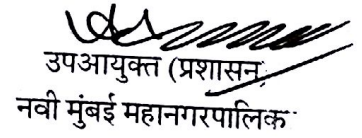 उपआयुक्त (प्रशासन)
नवी मुंबई महानगरपालिक